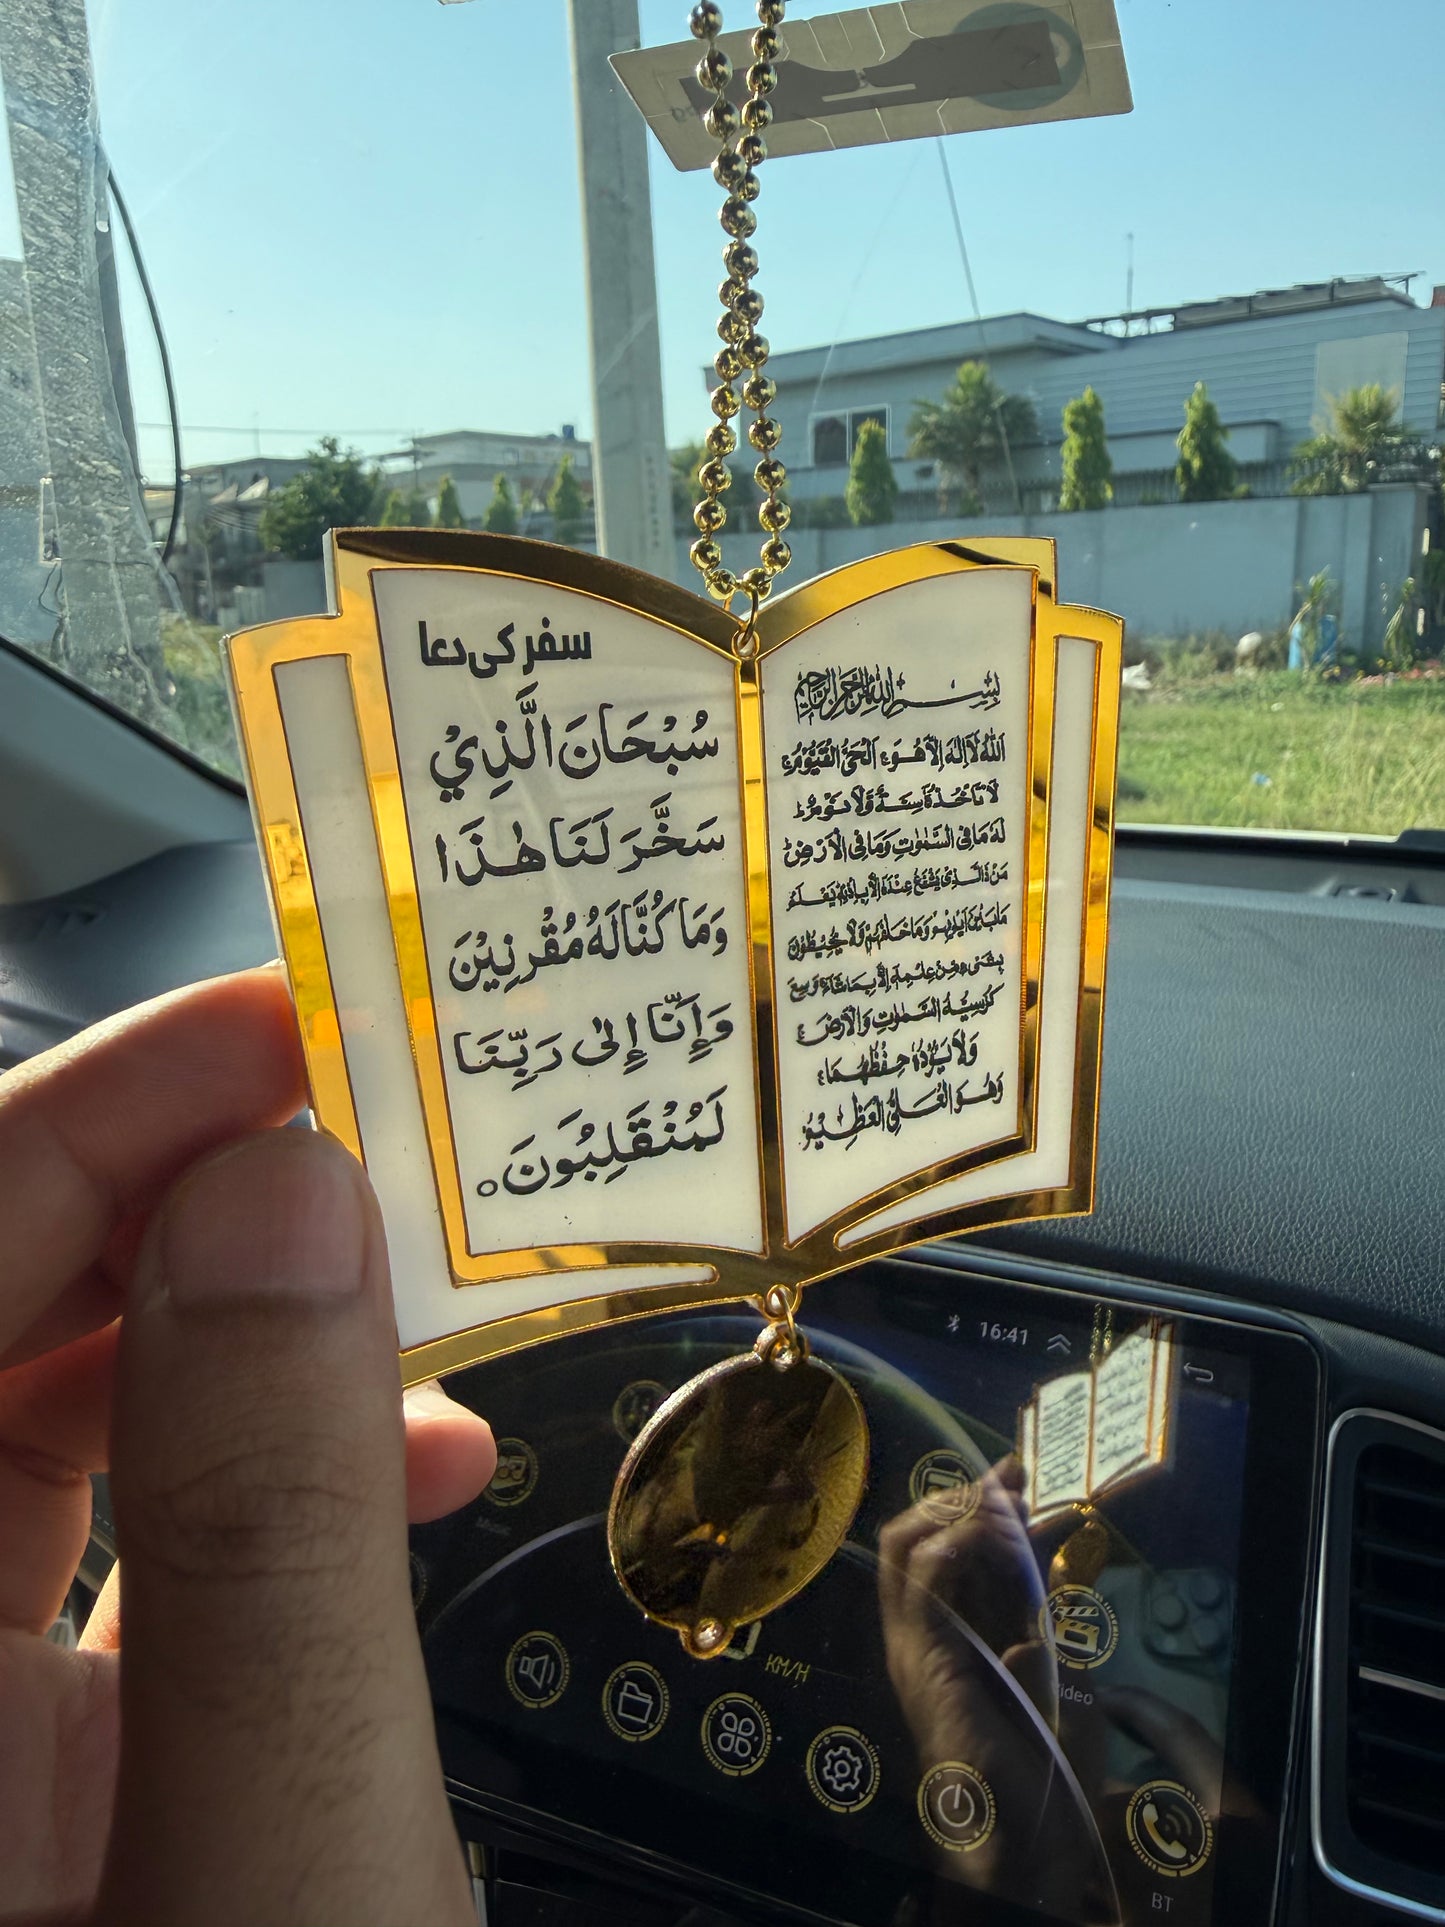 سفر کی دعا
سُبْحَانَ الَّذِيْ
سَخَّرَ لَنَا هٰذَا
وَمَا كُنَّا لَهُ مُقْرِنِيْنَ
وَإِنَّا إِلىٰ رَبِّنَا
لَمُنْقَلِبُونَ
بِسْمِ اللهِ الرَّحْمٰنِ الرَّحِيْمِ
اَللّٰهُ لَا اِلٰهَ اِلَّا هُوَ ۚ اَلْحَيُّ الْقَيُّوْمُ ۚ
لَا تَاْخُذُهٗ سِنَةٌ وَّلَا نَوْمٌ ؕ
لَهٗ مَا فِی السَّمٰوٰتِ وَمَا فِی الْاَرْضِ ؕ
مَنْ ذَا الَّذِیْ یَشْفَعُ عِنْدَهٗ اِلَّا بِاِذْنِهٖ یَعْلَمُ
مَا بَیْنَ اَیْدِیْهِمْ وَمَا خَلْفَهُمْ وَلَا یُحِیْطُوْنَ
بِشَیْءٍ مِّنْ عِلْمِهٖ اِلَّا بِمَا شَآءَ وَسِعَ
كُرْسِیُّهُ السَّمٰوٰتِ وَالْاَرْضَ ۚ
وَلَا یَـُٔوْدُهٗ حِفْظُهُمَا ۚ
وَهُوَ الْعَلِیُّ الْعَظِیْمُ
16:41
KM/H
Video
BT